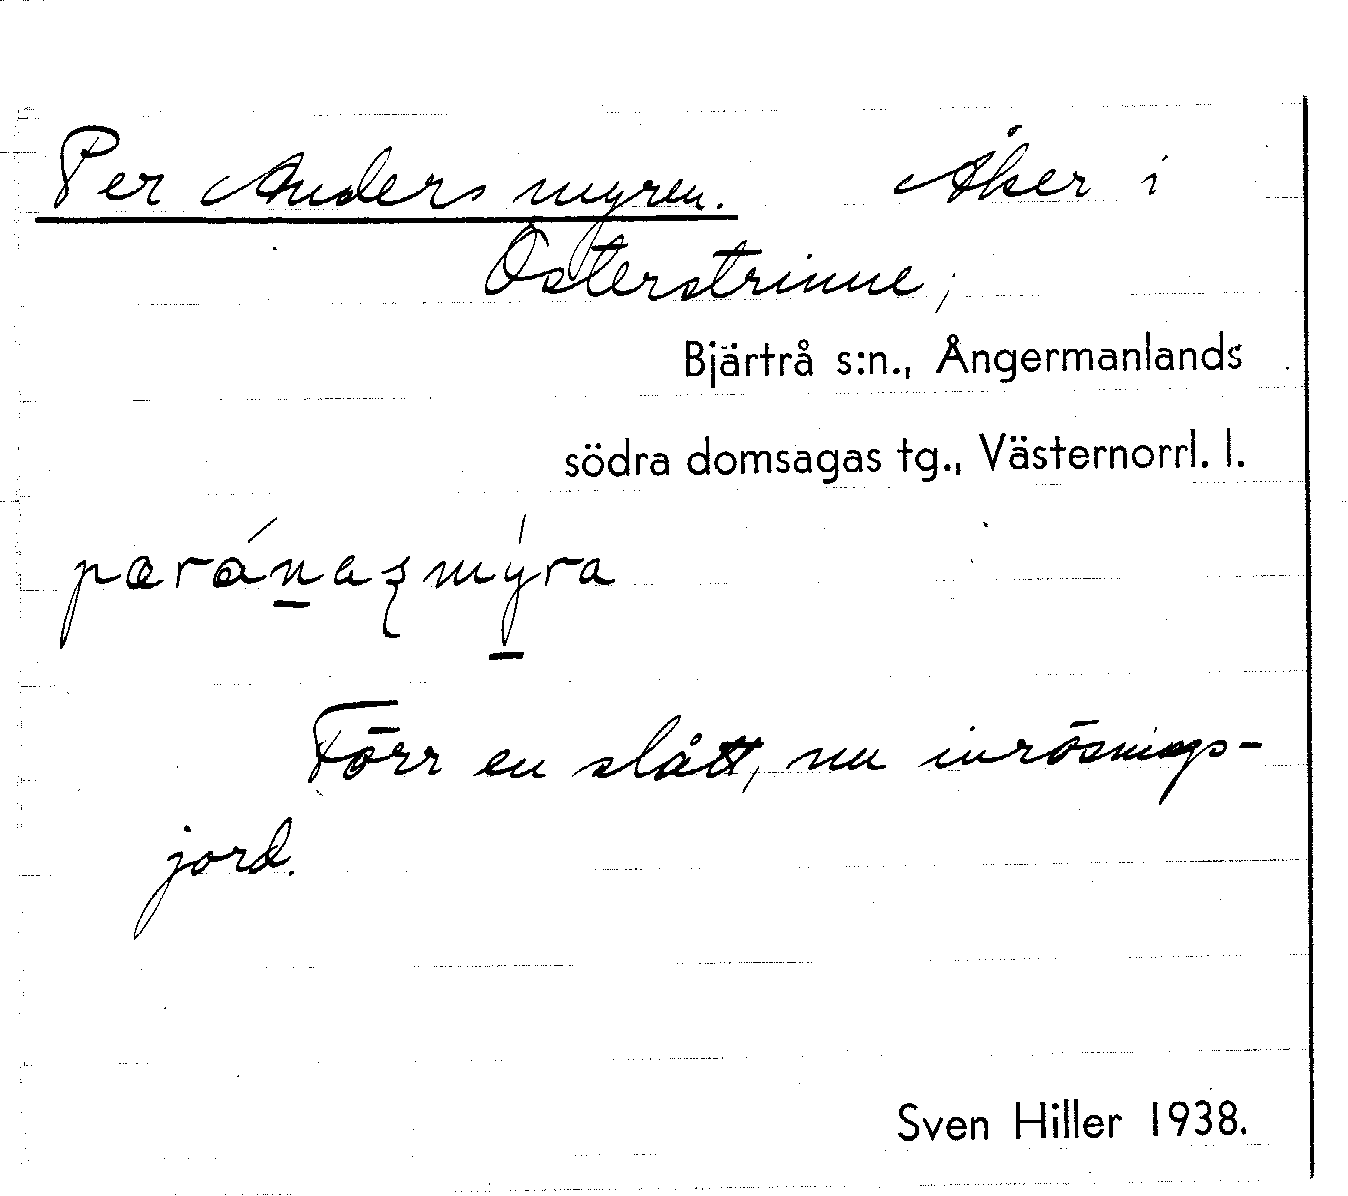 Per Anders myren. Åker i
Österstrinne,
Bjärtrå s:n., Ångermanlands
södra domsagas tg., Västernorrl. l.
Förr en slått, nu inrösnings-
jord.
Sven Hiller 1938.